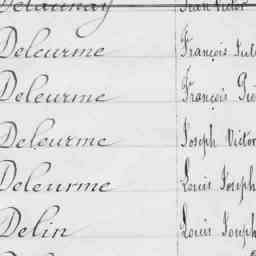 Delaunay Jean Victor
Deleurme François Jul
Deleurme François
Deleurme Joseph Victor
Deleurme Louis Joseph
Delin Louis Joseph